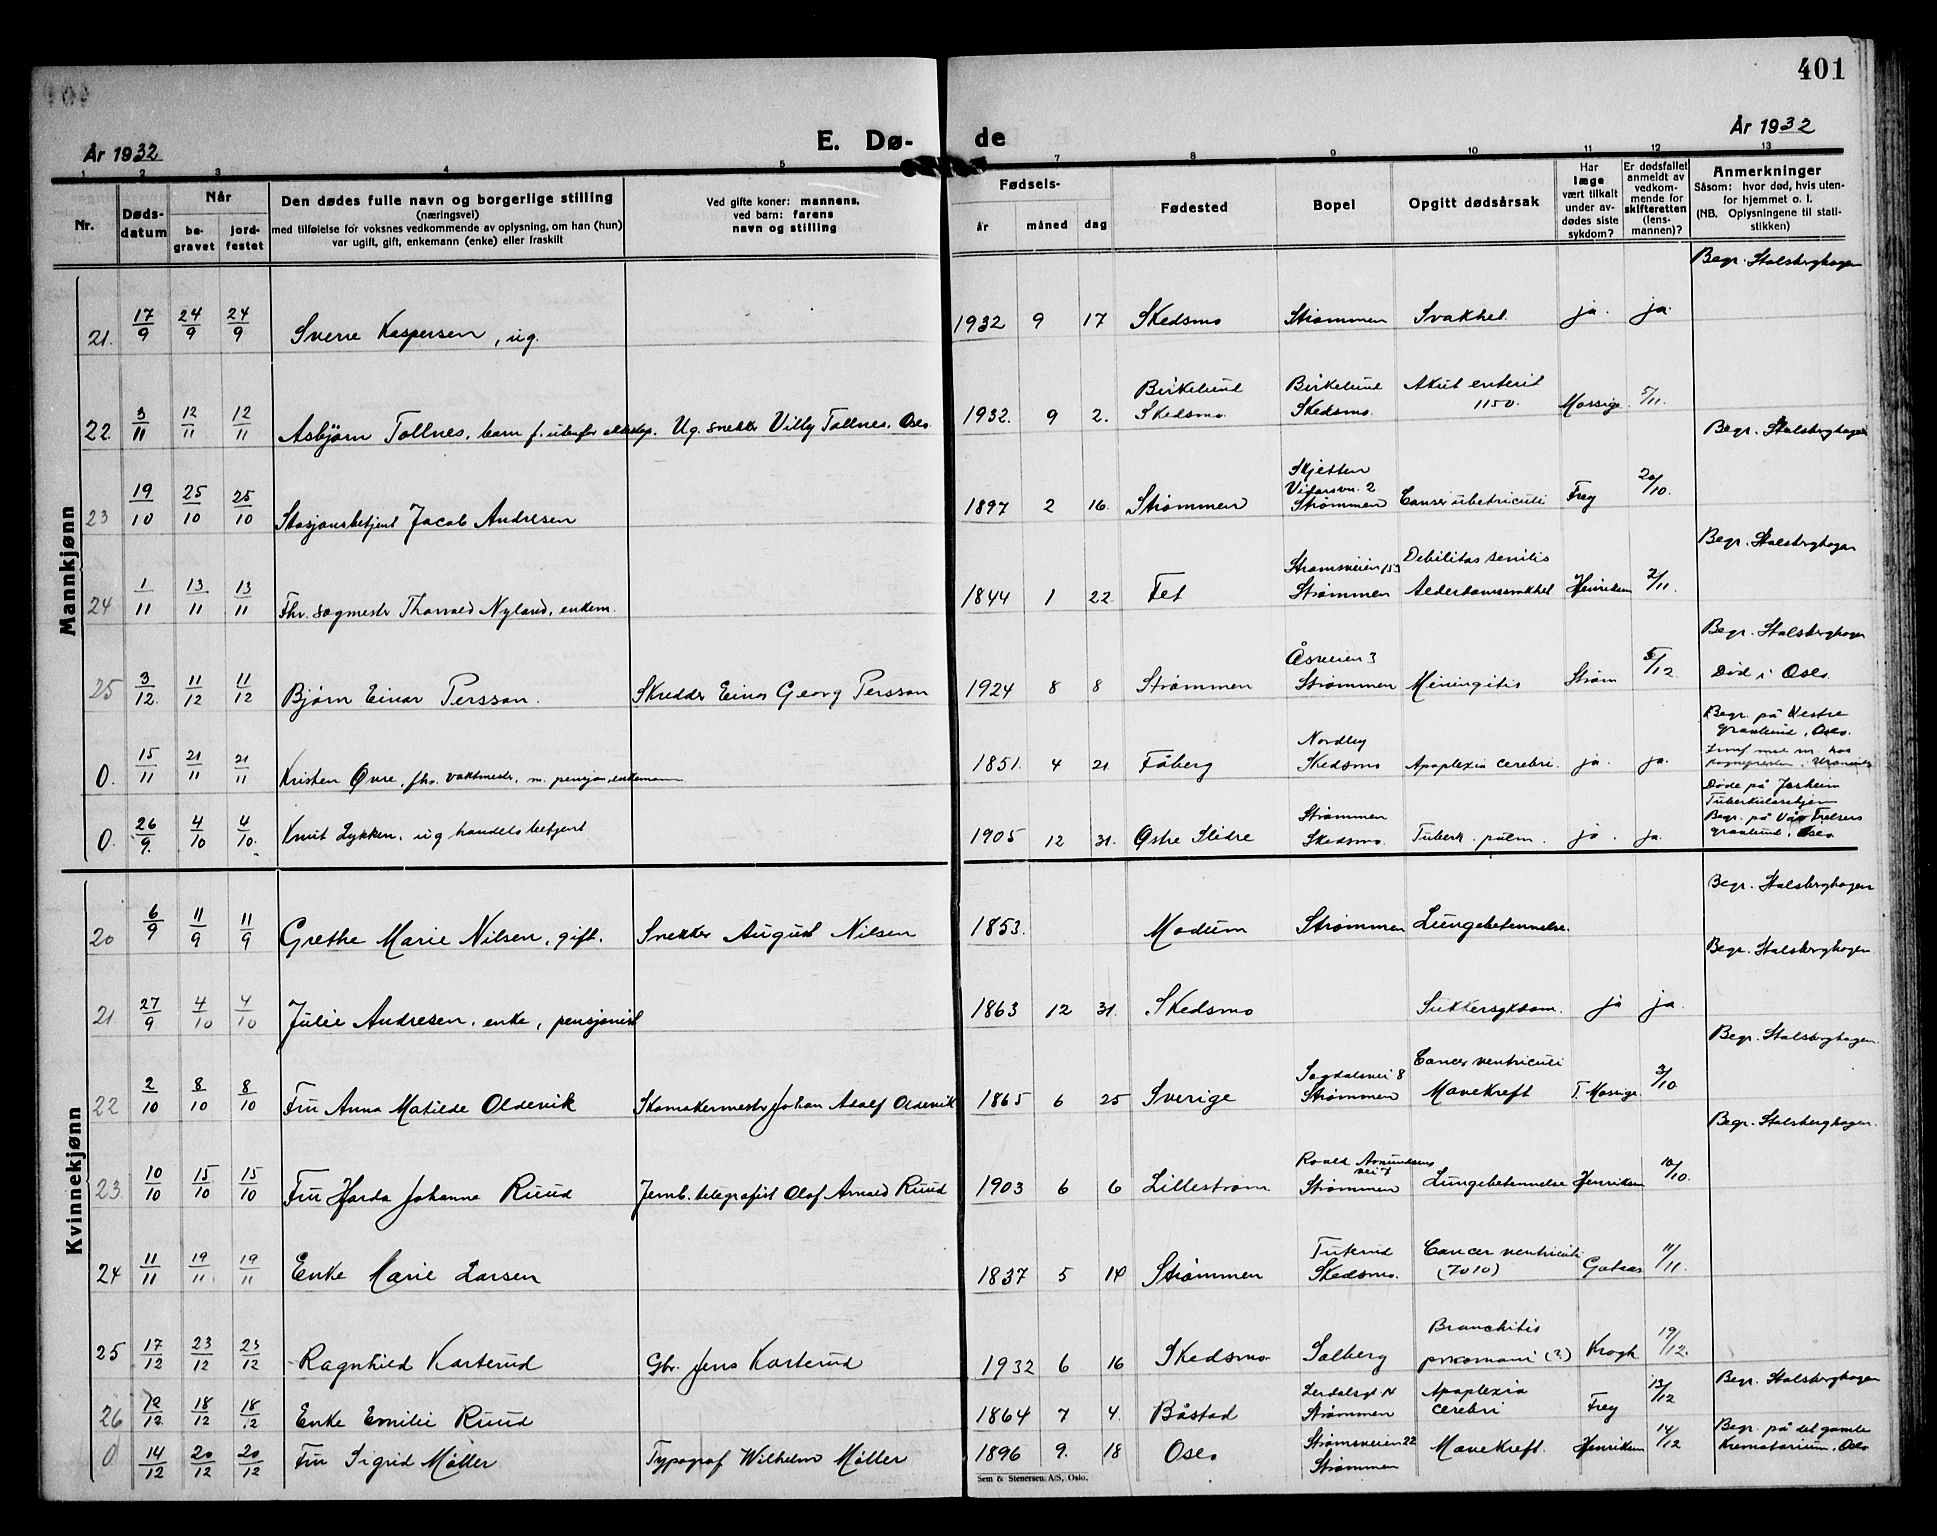 401
År 1932
E. Dø-
de
År 1932
1 2 3 4 5 7 8 9 10 11 12 13
Nr.
Døds-
datum
Når
be-
gravet
jord-
festet
Den dødes fulle navn og borgerlige stilling
(næringsvei)
med tilføielse for voksnes vedkommende av oplysning, om han (hun)
var ugift, gift, enkemann (enke) eller fraskilt
Ved gifte koner: mannens,
ved barn: farens
navn og stilling
Fødsels-
år måned dag
Fødested
Bopel
Opgitt dødsårsak
Har
læge
vært tilkalt
under av-
dødes siste
sykdom?
Er dødsfallet
anmeldt av
vedkom-
mende for
skifteretten
(lens-
mannen)?
Anmerkninger
Såsom: hvor død, hvis uten-
for hjemmet o. l.
(NB. Oplysningene til stati-
stikken)
Mannkjønn
Begr. Stalsberghagen
21. 17/9 24/9 24/9 Sverre Kaspersen, ug. 1932 9 17 Skedsmo Strømmen Svakhet. ja. ja.
Birkelund Birkelund Akut enterit
22. 3/11 12/11 12/11 Asbjørn Tollnes, barn f. utenfor ekteskap. Ug. snekker Villy Tollnes, Oslo. 1932. 9 2. Skedsmo. Skedsmo. 1150. Mossige 5/11.
Begr. Stalsberghagen
Skjetten
Vitarsvn. 2
23 19/10 25/10 25/10 Stasjonsbetjent Jacob Andresen 1897 2 16. Strømmen Strømmen Frey 20/10.
Begr. Stalsberghagen
Strømsveien 153 Debilitas senilis
24 1/11 13/11 13/11 Fhv. sagmester Thorvald Nyland, enkem. 1844 1 22. Fet Strømmen Alderdomssvakhet Henriksen 2/11.
Begr. Stalsberghagen
Åsveien 3
25 3/12. 11/12 11/12 Bjørn Einar Persson. Skredder Einar Georg Persson 1924 8 8 Strømmen Strømmen Miningitis Strøm 5/12 Død i Oslo.
Begr. på Vestre
gravlund, Oslo.
Nordby
0. 15/11 21/11 21/11 Kristen Øvre, fhv. vaktmester, m. pensjon, enkemann 1851. 4 21 Fåberg Skedsmo Apoplexia cerebri. ja. ja.
Døde på Jesheim
Tuberkulosehjem
Begr. på Vår Frelsers
gravlund, Oslo
Strømmen
0. 26/9. 4/10 4/10. Knut Lykken, ug handelsbetjent 1905 12 31. Østre Slidre Skedsmo. Tuberk. pulm. ja. ja.
Kvinnekjønn
Begr. Stalsberghagen
20 6/9 11/9 11/9 Grethe Marie Nilsen, gift. Snekker August Nilsen 1853. Modum Strømmen Lungebetennelse.
Begr. Stalsberghagen
21. 27/9 4/10 4/10 Julie Andresen, enke, pensjonist 1863 12 31. Skedsmo Sukkersykdom. ja ja.
Begr. Stalsberghagen.
Sagdalsvei 8 Cancer ventriculi
22 2/10 8/10 8/10 Fru Anna Matilde Oldevik Skomakermester Johan Adolf Oldevik 1865 6 25 Sverige Strømmen Mavekreft T. Mossige. 3/10
Begr. Stalsberghagen.
Roald Amundsens
vei 7
23. 10/10 15/10 15/10 Fru Harda Johanne Ruud Jernb. telegrafist Olaf Arnald Ruud 1903 6 6 Lillestrøm Strømmen Lungebetennelse Henriksen 10/10.
Tuterud Cancer ventriculi
24 11/11 19/11 19/11 Enke Marie Larsen 1837 5 14 Strømmen Skedsmo. (7010) Gotaas 11/11.
Bronchitis
25 17/12 23/12 23/12 Ragnhild Karterud Gbr. Jens Karterud 1932 6 16 Skedsmo. Solberg (?) Krogh 19/12.
Begr. Stalsberghagen
Apoplexia
26 12/12 18/12 18/12 Enke Emilie Ruud 1864 7 4. Båstad Strømmen cerebri Frey 13/12
Begr. på det gamle
Krematorium, Oslo
Strømsveien 22
0 14/12 20/12 20/12 Fru Sigrid Møller Typograf Wilhelm Møller 1896 9. 18 Oslo Strømmen Mavekreft. Henriksen 14/12
Sem & Stenersen A/S, Oslo.